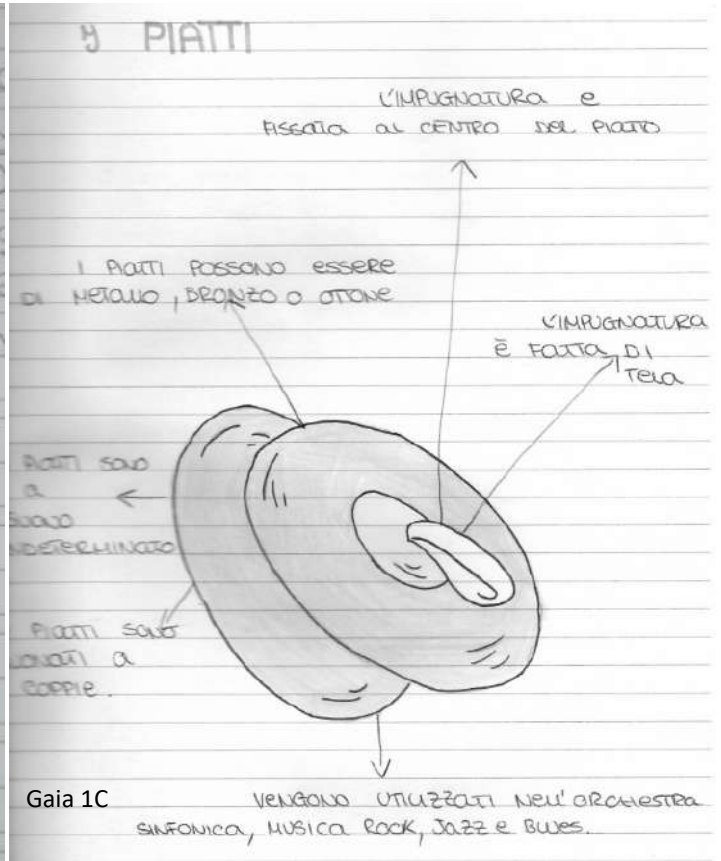 I PIATTI
L'IMPUGNATURA e
FISSATA AL CENTRO DEL PIATTO
I PIATTI POSSONO ESSERE
DI METALLO, BRONZO O OTTONE
L'IMPUGNATURA
È FATTA DI
TELA
PIATTI SONO
a
SUONO
NDETERMINATO
PIATTI SONO
UONATI a
COPPIE.
Gaia 1C
VENGONO UTILIZZATI NELL'ORCHESTRA
SINFONICA, MUSICA ROCK, JAZZ e BLUES.